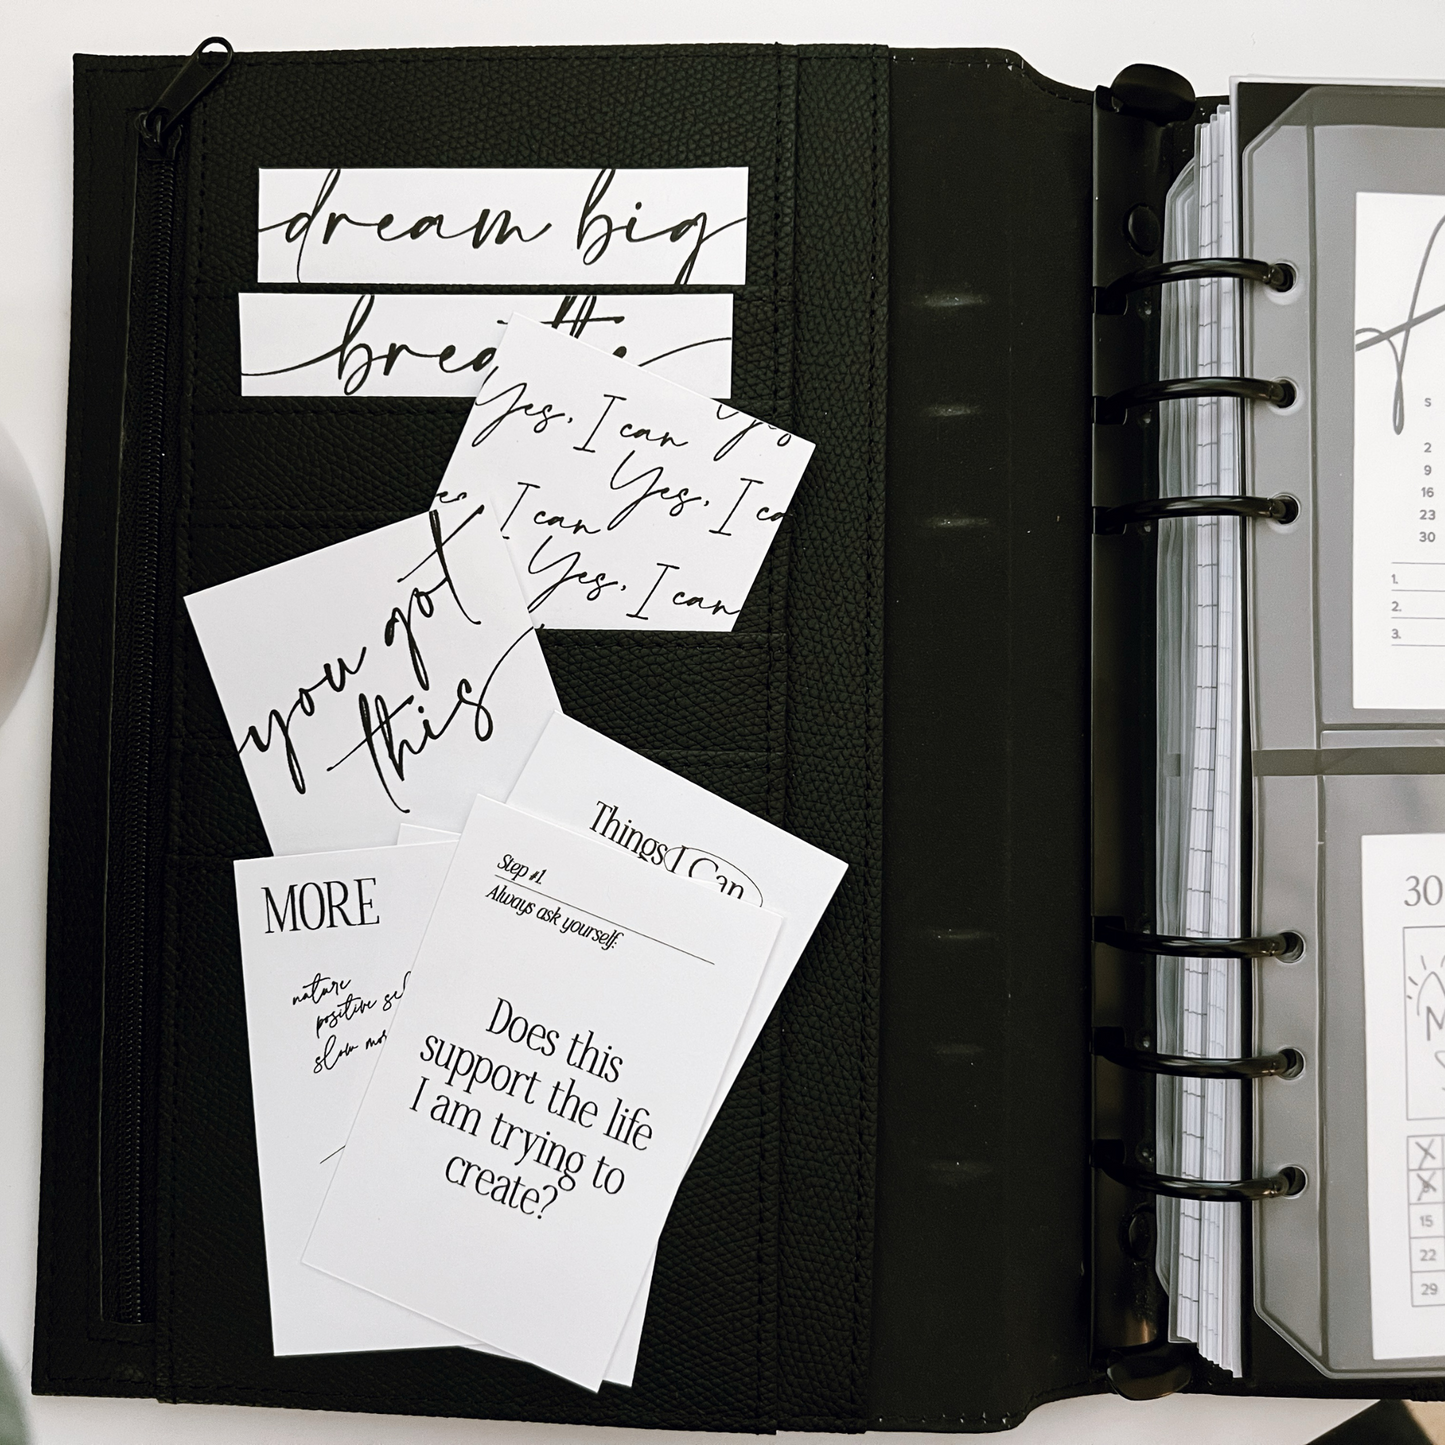 dream big
breathe
Yes, I can
Yes, I
I can
Yes, I can
you got
this
Things I Can
Step #1.
Always ask yourself:
Does this
support the life
I am trying to
create?
MORE
nature
positive
slow
S
2
9
16
23
30
1.
2.
3.
30
M
15
22
29